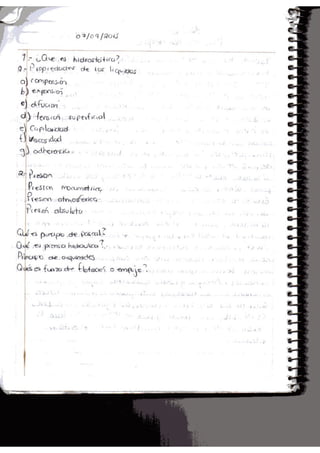 07/09/2015
1:- ¿Que es hidrostática?
2:- Propiedades de los liquidos
a) compresión
b) expansión
c) difucion
d) tensión superficial
e) Capilaridad
f) Viscosidad
g) adherencia
R: Presion
Presion manometrica
Presion atmosferica
Presion absoluta
Qué es principio de Pascal?
Qué es prensa hidraulica?
Principio de arquimedes
Qué es fuerza de flotacion o empuje?